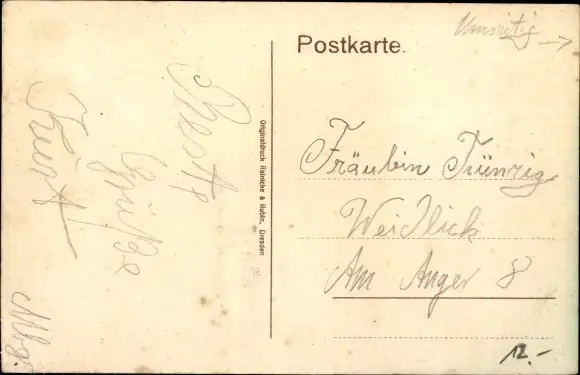 Umseitig
Postkarte.
Beste
Grüße
Kurt
Mbg.
Originaldruck Reinicke & Rubin, Dresden
Fräulein Tünzig
Weidlich
Am Anger 8
12.-